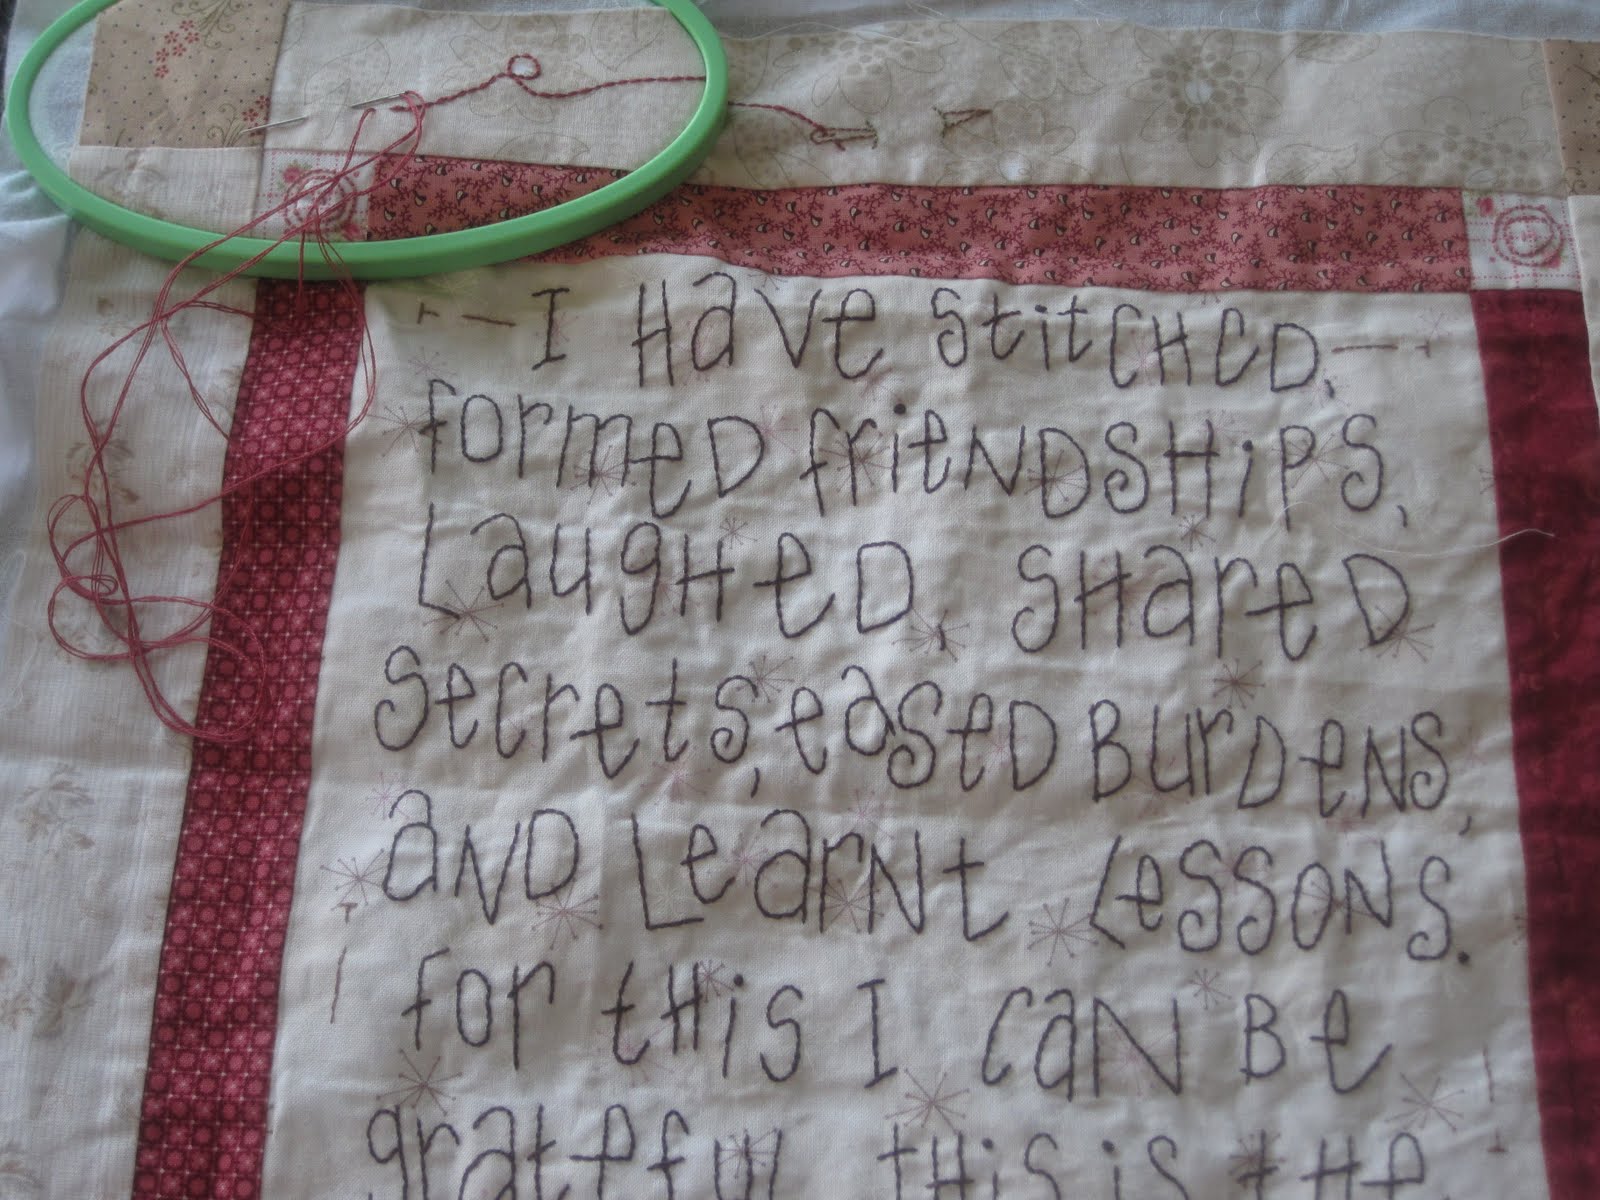 I Have StitcHed,
formed friendSHipS,
LaugHed, SHared
Secrets, eased Burdens,
and Learnt Lessons.
for tHis I can Be
grateful tHis is tHe